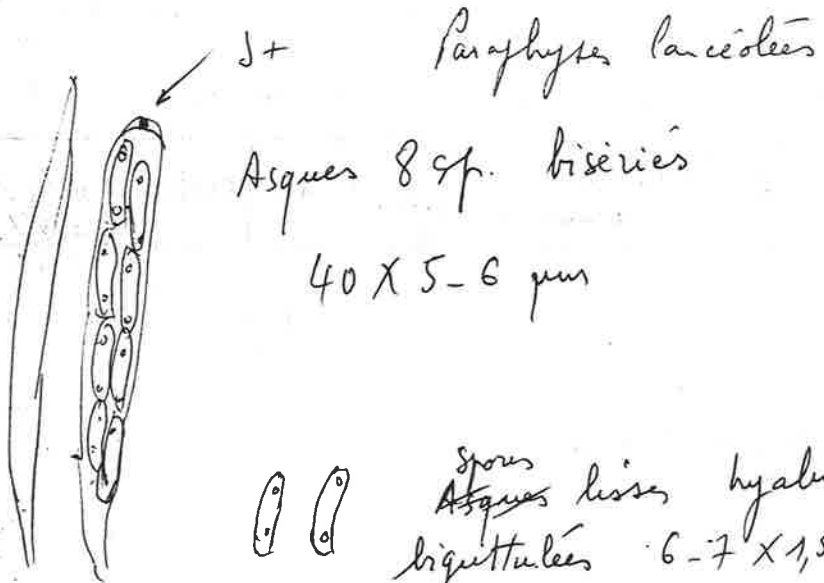 J+ Paraphyses lancéolées
Asques 8 sp. bisériés
40 X 5-6 µm
spores
Asques lisses hyal
biguttulées 6-7 X 1,5